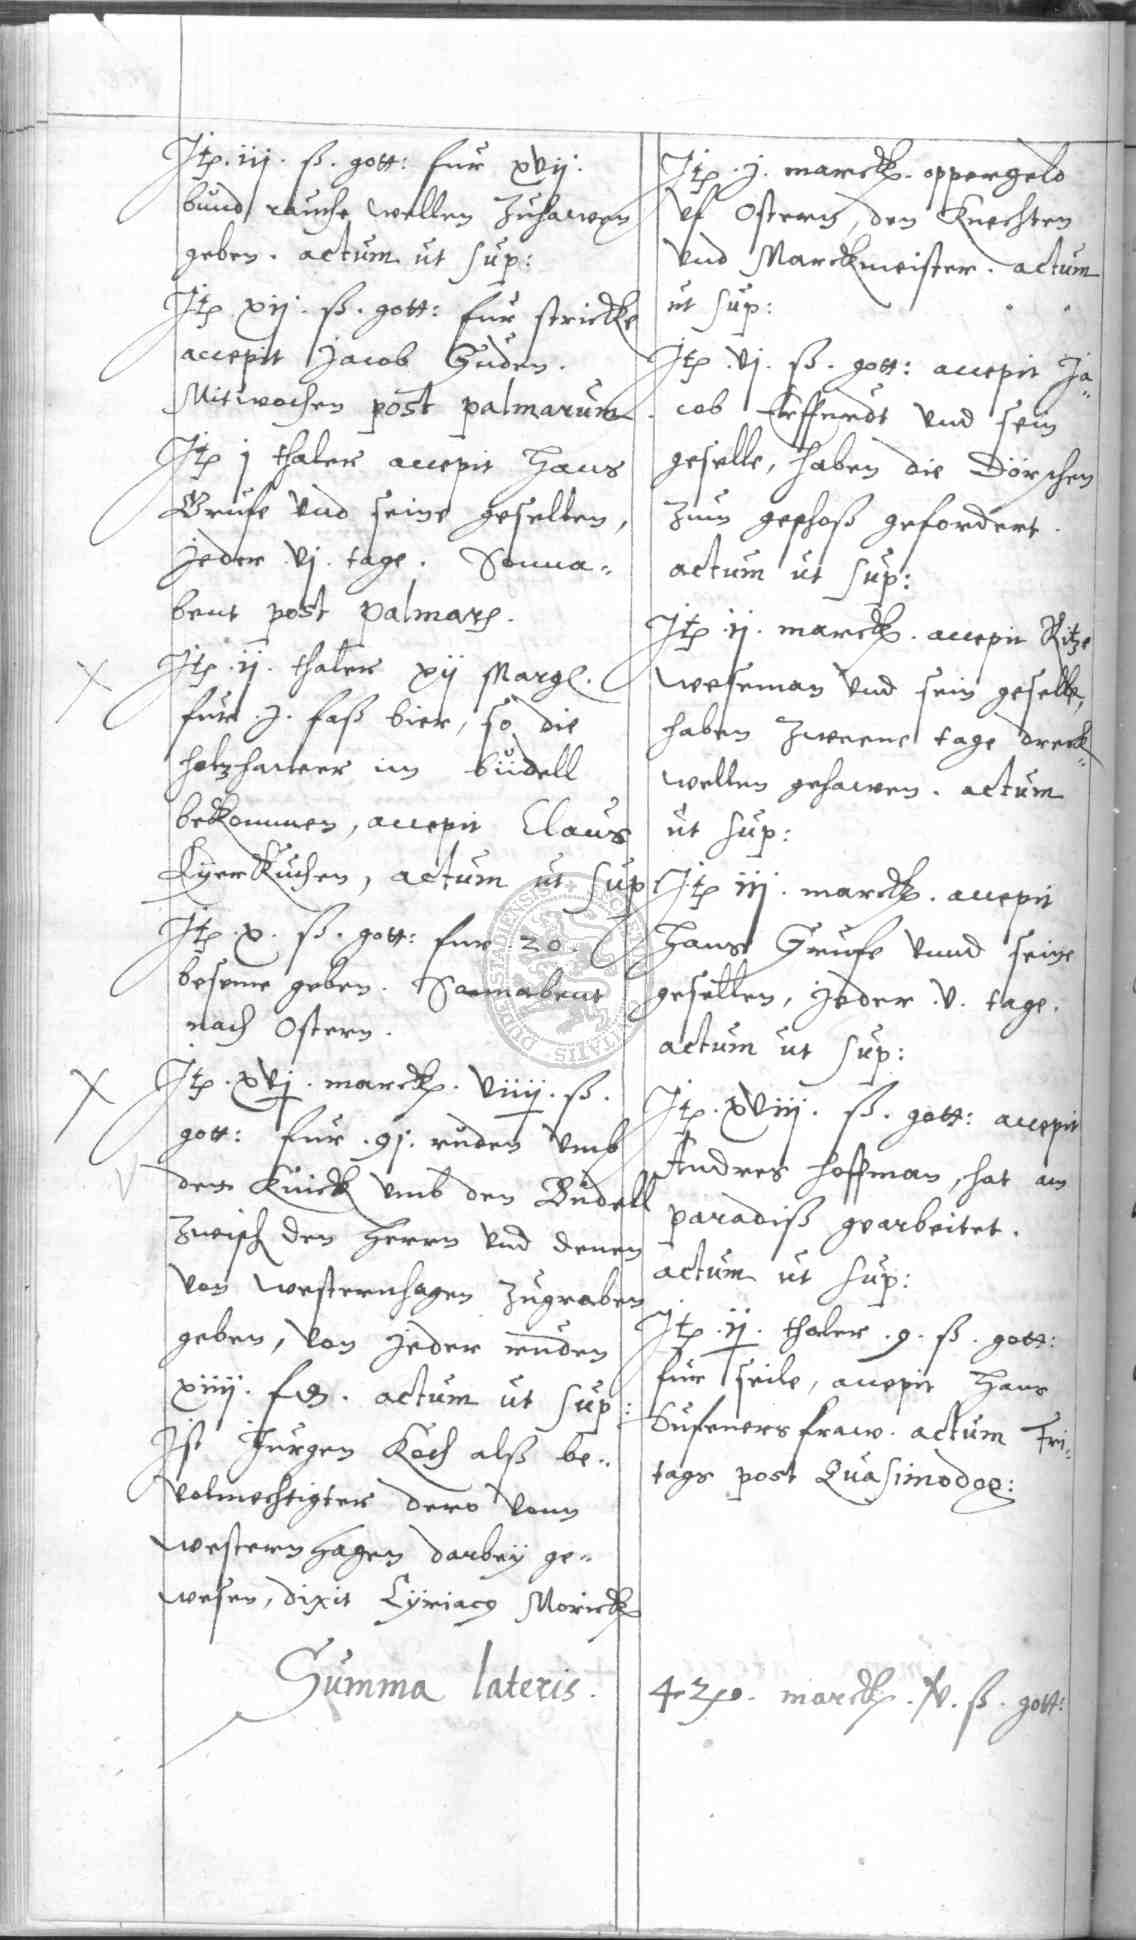 Itp. iij. ß. gott: fur xvij.
bund rauche wellen zuhawen
geben. actum ut sup:
Itp xij. ß. gott: fur stricke
accepit Jacob Guden.
Mitwochen post palmarum
Itp j thaler accepit Hans
Grufe vnd seine gesellen,
jeder vj. tage. Sonna=
bent post palmarum.
Itp. ij. thaler xij Margl.
fur .j. faß bier, so die
holzhawer im büdell
bekommen, accepit Claus
Lyerkuchen, actum ut sup
Itp. x. ß. gott: fur 20
beseme geben. Sonnabent
nach Ostern.
Itp. xvj. marck. viiij. ß.
gott: fur .91. ruden vmb
den Knick vmb den Büdell
zwisch den Herrn vnd denen
von Westernhagen zugraben
geben, von jeder ruden
xiiij. actum ut sup:
Ist Jurgen Koch alß be=
volmechtigter dero vonn
Westernhagen darbey ge=
wesen, dixit Cyriacq Morick
Summa lateris.
Itp. j. marck. oppergeld
vf Ostern, den Knechten
vnd Marckmeister. actum
ut sup:
Itp. vj. ß. gott: accepit Ja=
cob vnd sein
geselle, haben die Dörchen
zum geschoß gefordert.
actum ut sup:
Itp. ij. marck. accepit Ritze
Weseman vnd sein geselle,
haben zweene tage dreck=
wellen gehawen. actum
ut sup:
Itp iij. marck. accepit
Hans Grufe vnnd seine
gesellen, jeder .v. tage.
actum ut sup:
Itp. xviij. ß. gott: accepit
Andres Hoffman, hat am
paradiß gearbeitet.
actum ut sup:
Itp. ij. thaler .9. ß. gott:
fur seile, accepit Hans
fraw. actum Fri=
tags post Quasimodog:
marck. v. ß. gott: